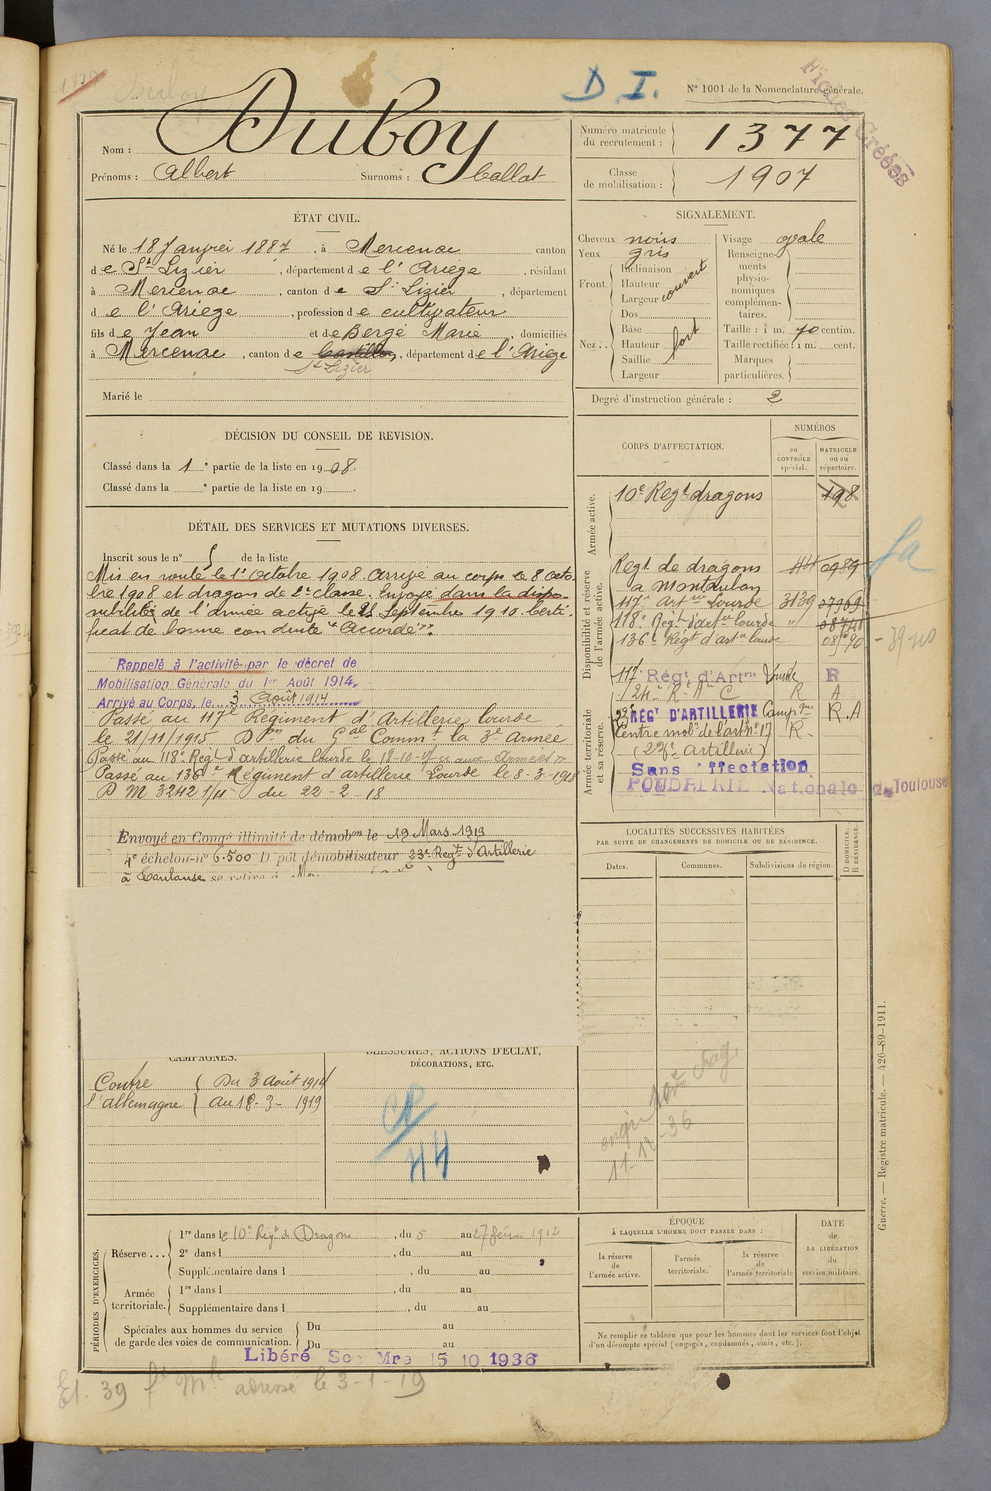 D. I.
N° 1001 de la Nomenclature générale.
Fiches Créées
Nom : Duboy
Prénoms : Albert Surnoms : Callat
Numéro matricule du recrutement : 1377
Classe de mobilisation : 1907
ÉTAT CIVIL.
Né le 18 Janvier 1887, à Mercenac canton
de St Lizier, département de l'Ariège, résidant
à Mercenac, canton de St Lizier, département
de l'Ariège, profession de cultivateur
fils de Jean et de Bergé Marie domiciliés
à Mercenac, canton de Castillon, département de l'Ariège
St Lizier
Marié le
SIGNALEMENT.
Cheveux noirs
Yeux gris
Front. Inclinaison
Hauteur
Largeur
couvert
Nez .. Dos
Base
Hauteur
Saillie
Largeur
fort
Visage ovale
Renseignements physionomiques complémentaires.
Taille : 1 m. 70 centim.
Taille rectifiée : 1 m. cent.
Marques particulières.
Degré d'instruction générale : 2
DÉCISION DU CONSEIL DE REVISION.
Classé dans la 1e partie de la liste en 1908.
Classé dans la e partie de la liste en 19 .
DÉTAIL DES SERVICES ET MUTATIONS DIVERSES.
Inscrit sous le n° de la liste
Mis en route le 1er Octobre 1908. Arrivé au corps le 8 octo-
bre 1908 et dragon de 2e classe. Envoyé dans la dispo-
nibilité de l'armée active le 25 Septembre 1910. Certi-
ficat de bonne conduite "Accordé".
Rappelé à l'activité par le décret de
Mobilisation Générale du 1er Août 1914.
Arrivé au Corps, le 3 Août 1914
Passé au 117e Régiment d'Artillerie lourde
le 21/11/1915 D on du Gal Commt la 3e Armée
Passé au 118e Régt d'artillerie lourde le 18-10-17
Passé au 136e Régiment d'artillerie Lourde le 8-3-1918
D M 3242 1/11 du 22-2-18
Envoyé en Congé illimité de démobon le 19 Mars 1919
4e échelon-n° 6.500 Dépôt démobilisateur 23e Régt d'Artillerie
à Toulouse se retire à
CORPS D'AFFECTATION.
NUMÉROS
au CONTRÔLE spécial.
MATRICULE ou au répertoire.
Armée active.
10e Régt dragons 198
Disponibilité et réserve de l'armée active.
Régt de dragons
a Montauban
117e Artie Lourde 3139
118e Régt d'artie lourde "
136e Régt d'artie lourde
Armée territoriale et sa réserve.
117e Régt d'Artrie lourde R
R A
23e RÉGT D'ARTILLERIE Campgne R.A
Centre mobn de l'artie n° 17 R.
(23e artillerie)
Sans Affectation
POUDRERIE Nationale de Toulouse
LOCALITÉS SUCCESSIVES HABITÉES
PAR SUITE DE CHANGEMENTS DE DOMICILE OU DE RÉSIDENCE.
Dates. Communes. Subdivisions de région. D DOMICILE. R RÉSIDENCE.
11-12-36
CAMPAGNES.
Contre l'allemagne
Du 3 Août 1914
Au 18-3-1919
BLESSURES, ACTIONS D'ÉCLAT,
DÉCORATIONS, ETC.
CP
44
PÉRIODES D'EXERCICES.
Réserve ... 1re dans le 10e Régt de Dragons, du 5 au 27 février 1912
2e dans l , du au
Supplémentaire dans l , du au
Armée territoriale. 1re dans l , du au
Supplémentaire dans l , du au
Spéciales aux hommes du service de garde des voies de communication. Du au
Du au
Libéré Sce Mre 15 10 1936
ÉPOQUE
À LAQUELLE L'HOMME DOIT PASSER DANS :
la réserve de l'armée active.
l'armée territoriale.
la réserve de l'armée territoriale
DATE de LA LIBÉRATION du service militaire.
Ne remplir ce tableau que pour les hommes dont les services font l'objet
d'un décompte spécial (engagés, condamnés, omis, etc.).
Guerre. — Registre matricule. — 426-89-1911.